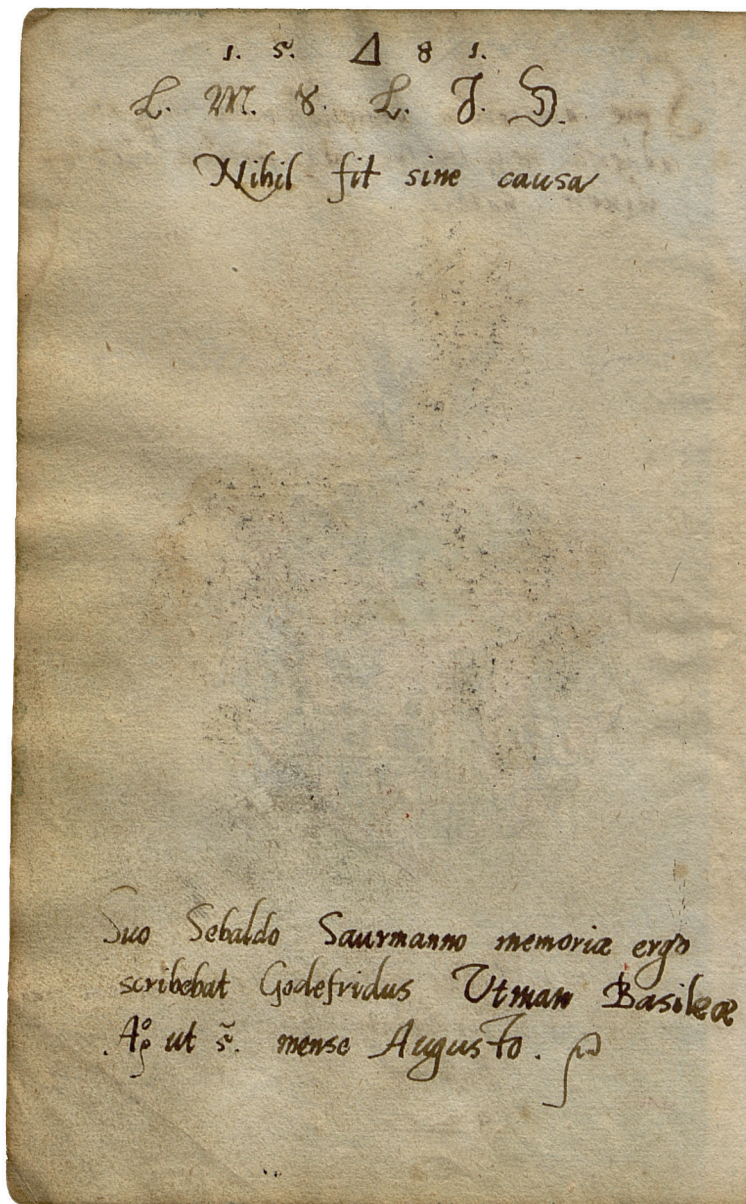 1. 5. Δ 8 1.
L. M. V. L. J. D.
Nihil fit sine causa
Suo Sebaldo Saurmanno memoriæ ergo
scribebat Godefridus Utman Basileæ
A° ut s̃. mense Augusto.